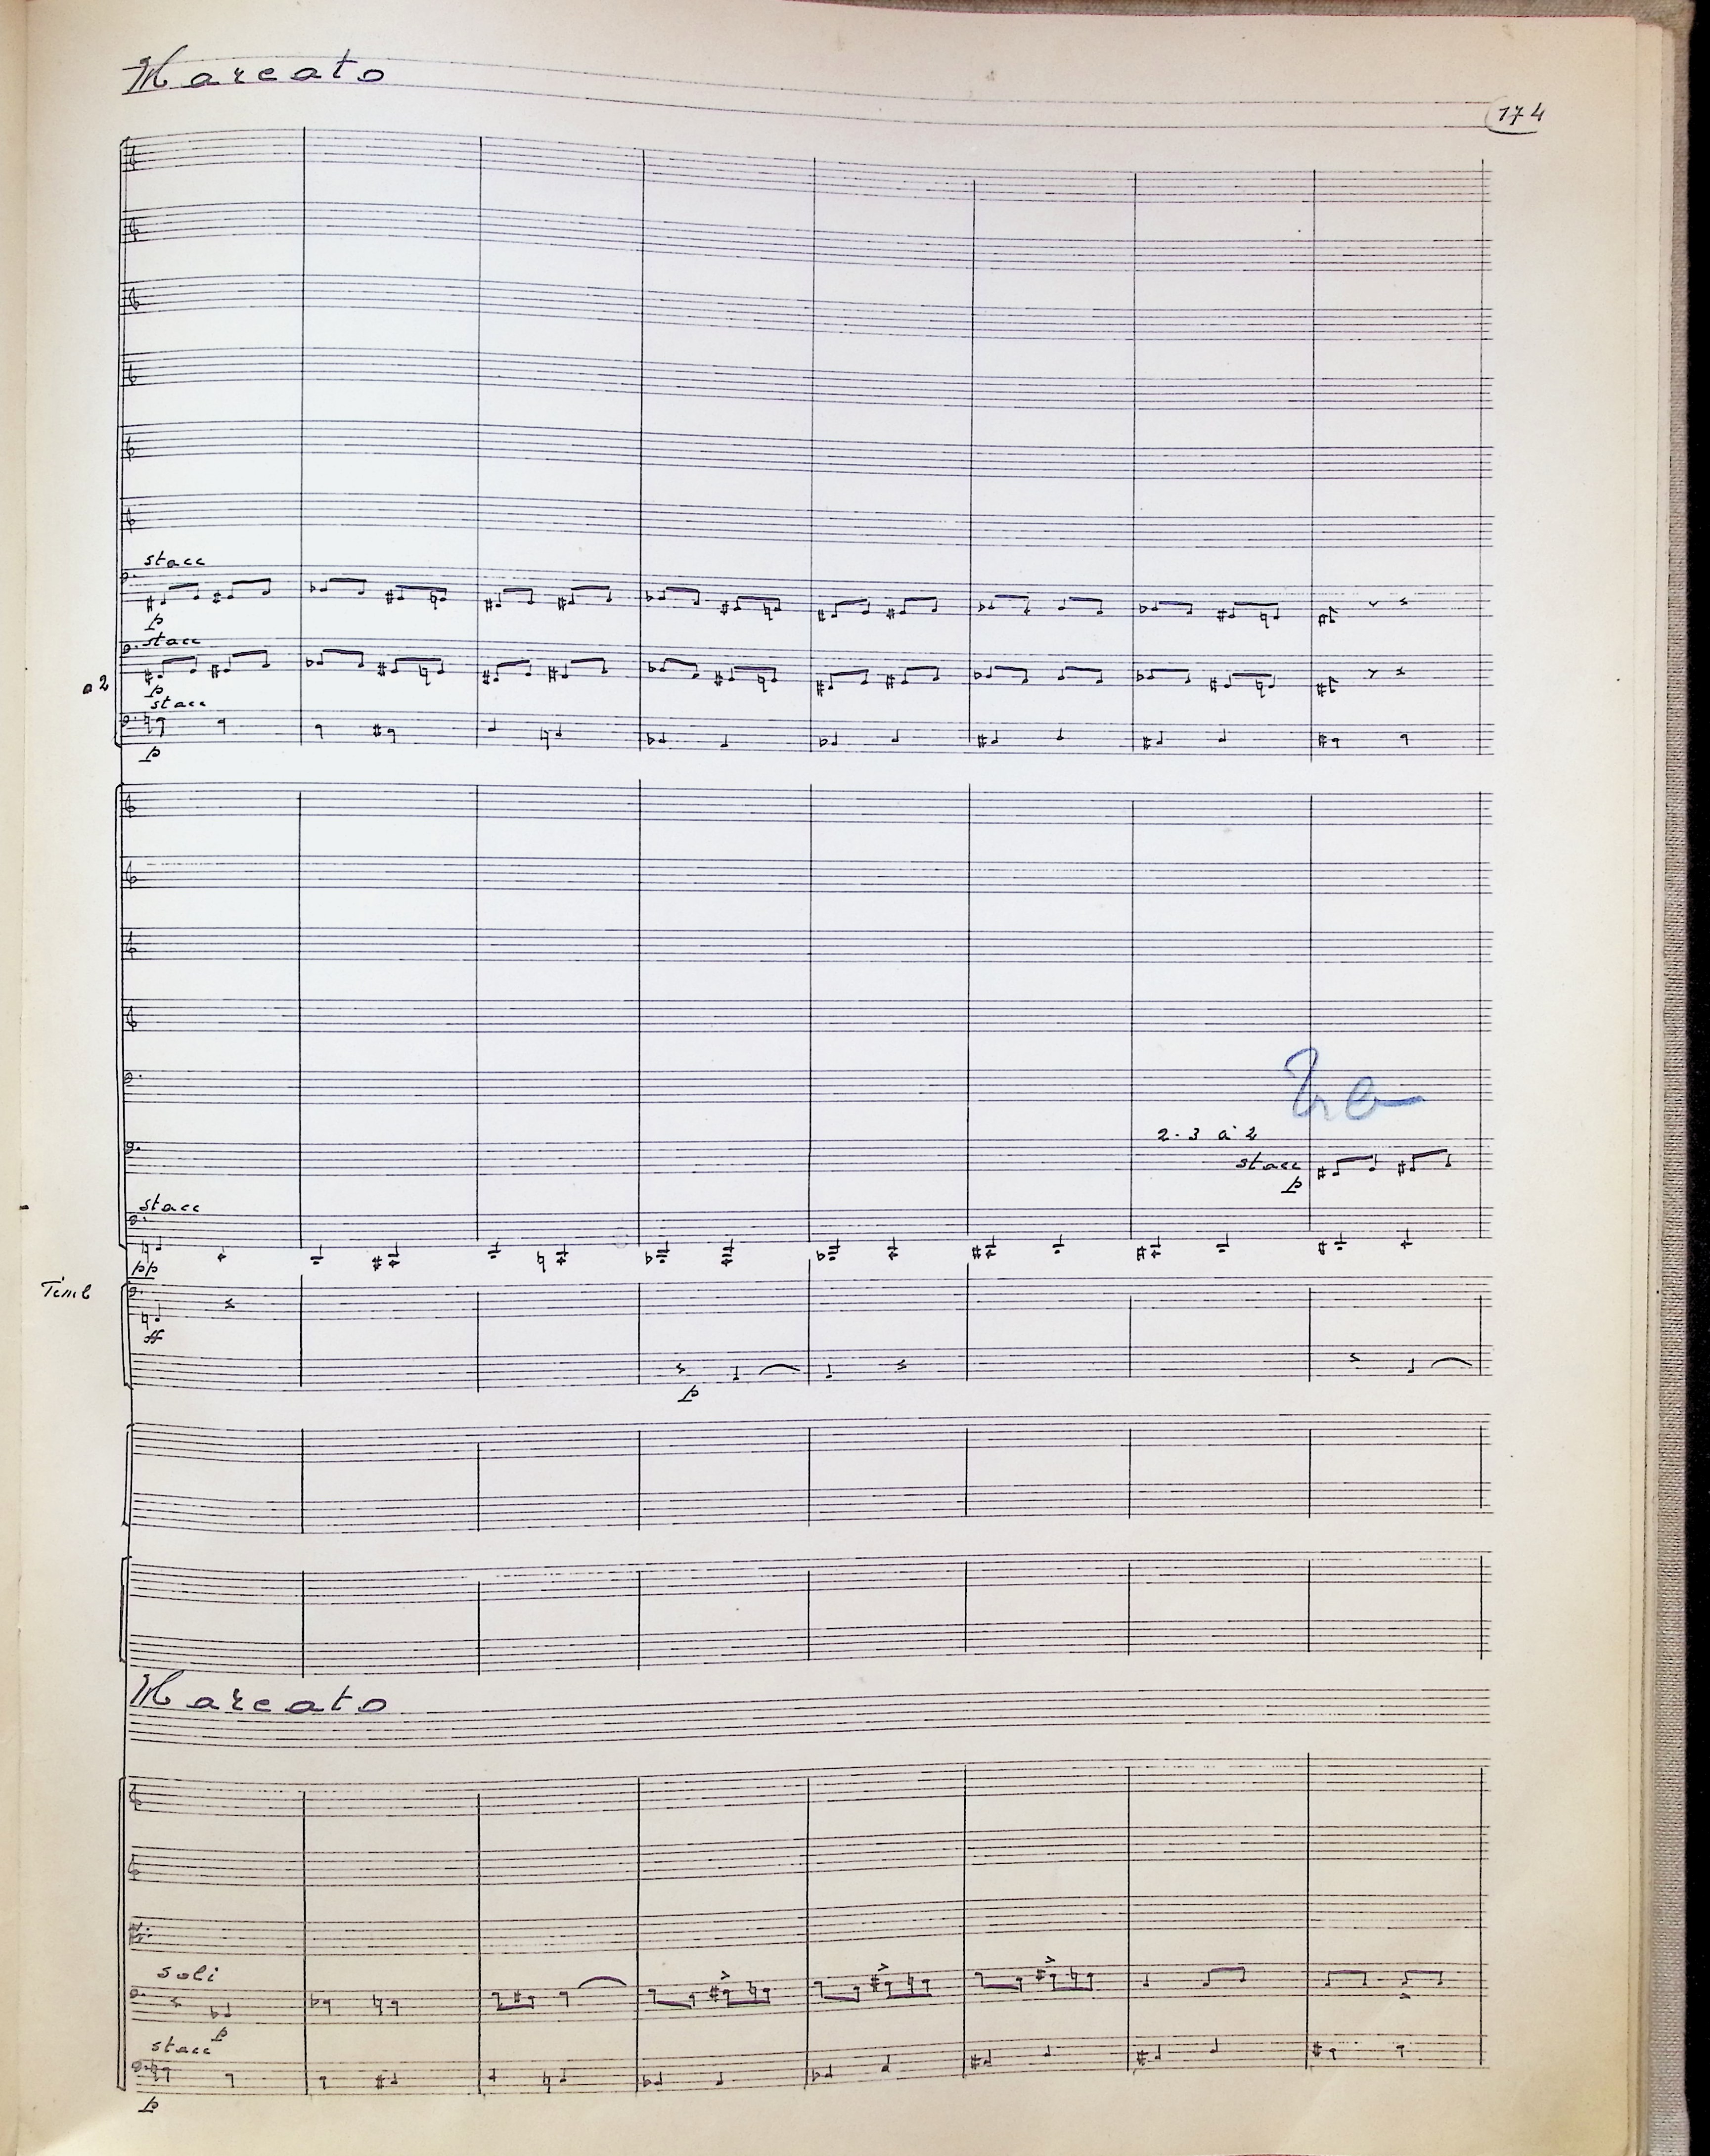 Marcato
174
stacc
p
stacc
a2
p
stacc
p
2.3 à 2
stacc
p
stacc
pp
Timb
ff
p
Marcato
soli
p
stacc
p